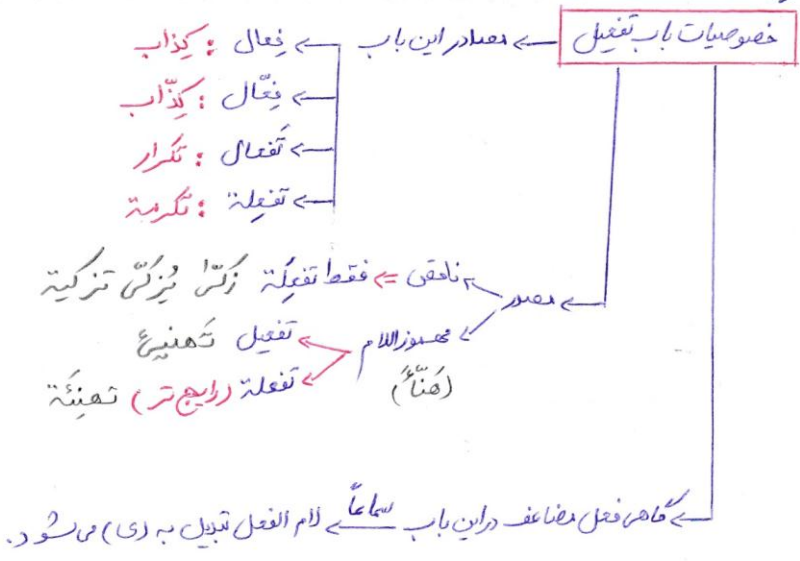 خصوصیات باب تفعیل ← مصادر این باب ← فِعال : کِذاب
← فِعّال : کِذّاب
← تَفعال : تَکرار
← تَفعِلة : تَکرِمة
مصدر ← ناقص ⇐ فقط تفعِلَة زَکّیٰ یُزَکّی تزکیة
مهموزاللام ← تفعیل تَهنیئ
(هَنَّأَ) ← تفعلة (رایج‌تر) تهنِئَة
← گاهی فعل مضاعف در این باب سماعاً ← لام الفعل تبدیل به (ی) می‌شود.